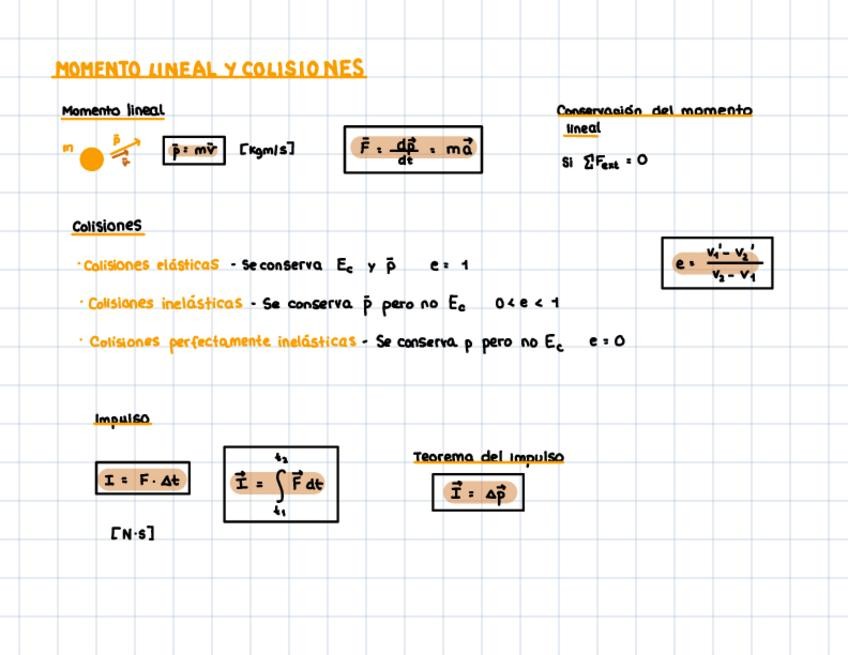 MOMENTO LINEAL Y COLISIONES
Momento lineal
m p̄ v̄ p̄ = mv̄ [Kgm/s] F̄ = dp⃗/dt = ma⃗
Conservación del momento
lineal
Si ΣF_ext = 0
Colisiones
· Colisiones elásticas - Se conserva E_c y p̄ e = 1
e = v₁' - v₂' / v₂ - v₁
· Colisiones inelásticas - Se conserva p̄ pero no E_c 0 < e < 1
· Colisiones perfectamente inelásticas - Se conserva p pero no E_c e = 0
Impulso
I = F · Δt
I⃗ = ∫ t₁ t₂ F⃗ dt
[N·s]
Teorema del impulso
I⃗ = Δp⃗